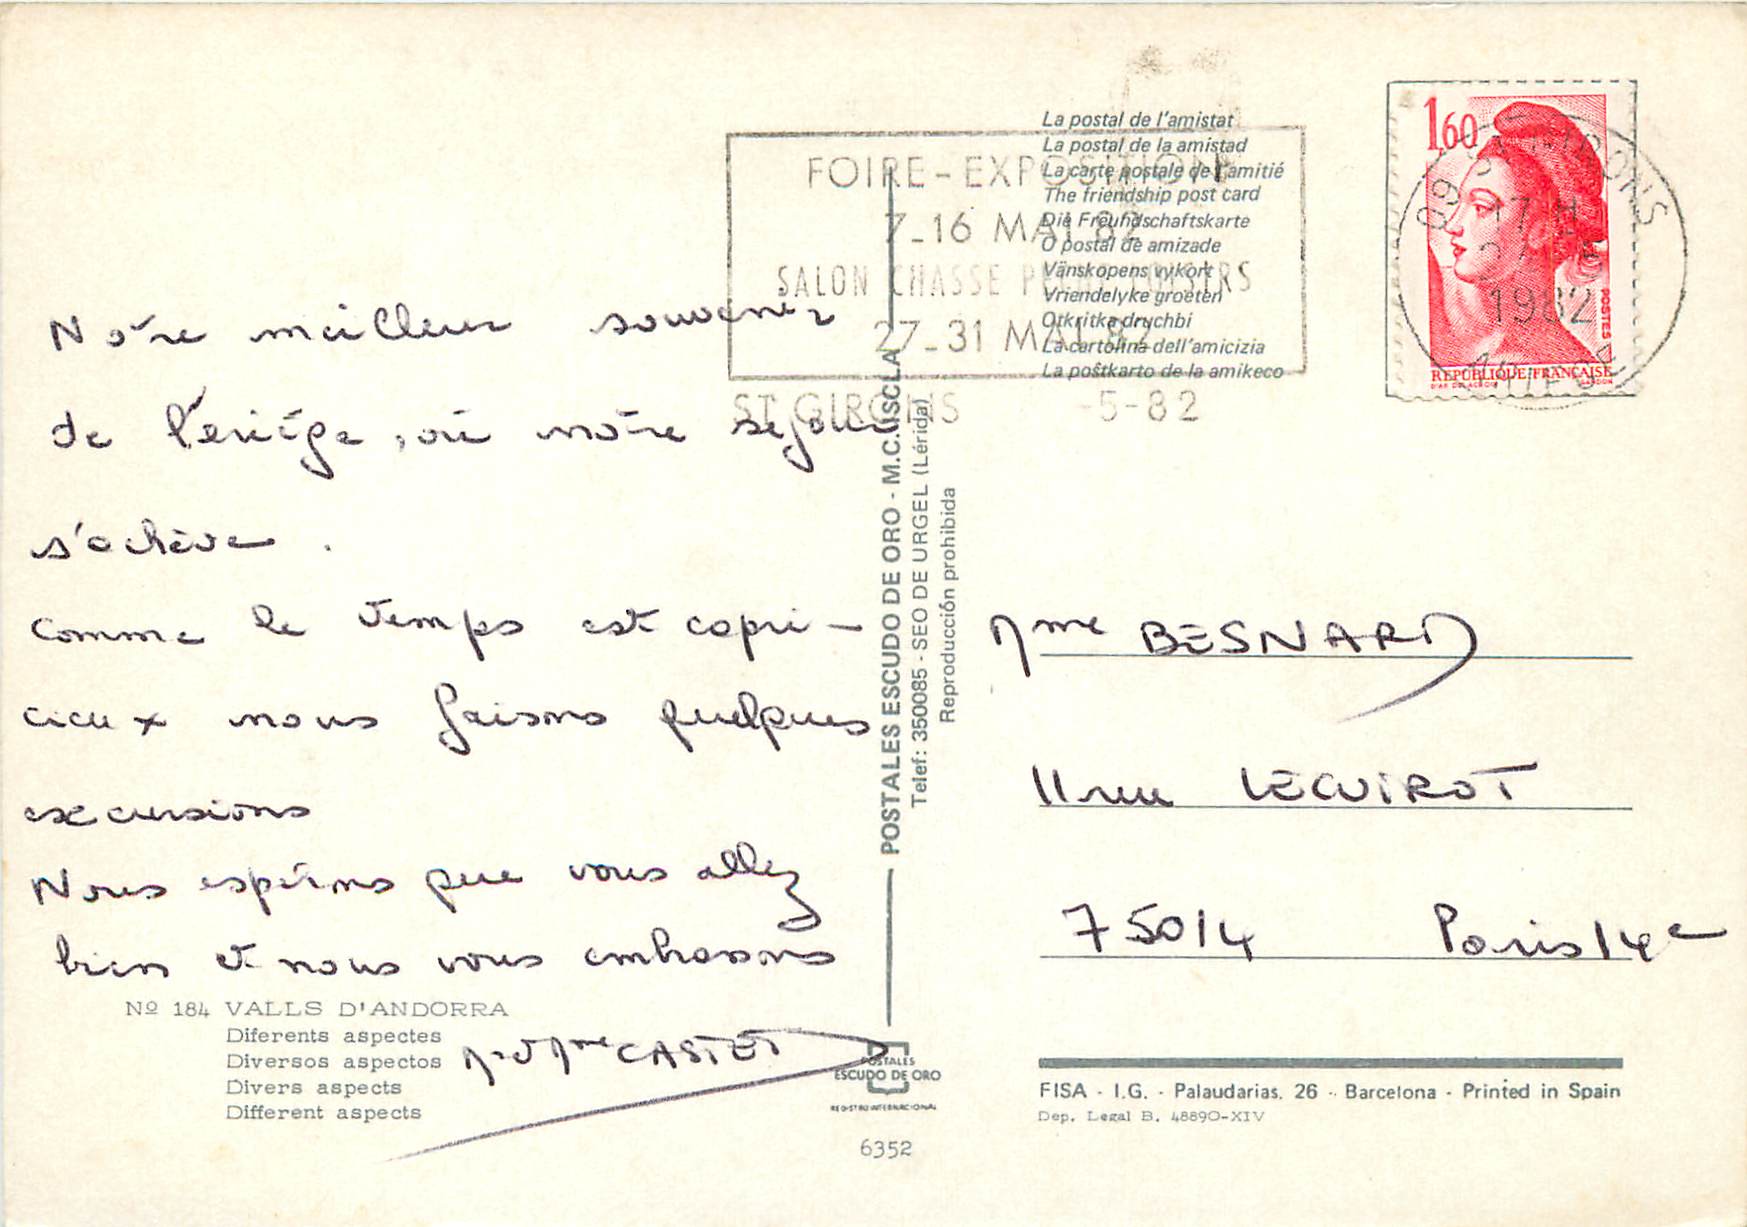 Notre meilleur souvenir
de l'eriège, où notre séjour
s'achève.
comme le temps est capri-
cieux nous faisons quelques
excursions
Nous espérons que vous allez
bien et nous vous embrassons
Mr et Mme CASTET
Nº 184 VALLS D'ANDORRA
Diferents aspectes
Diversos aspectos
Divers aspects
Different aspects
POSTALES ESCUDO DE ORO - M.C. ISCLA
Telef: 350085 - SEO DE URGEL (Lérida)
Reproducción prohibida
POSTALES
ESCUDO DE ORO
REGISTRO INTERNACIONAL
6352
La postal de l'amistat
La postal de la amistad
La carte postale de l'amitié
The friendship post card
Die Freundschaftskarte
O postal de amizade
Vänskopens vykort
Vriendelyke groeten
Otkritka druchbi
La cartolina dell'amicizia
La poŝtkarto de la amikeco
FOIRE-EXPOSITION
7-16 MAI 82
SALON CHASSE PECHE LOISIRS
27-31 MAI 82
ST GIRONS -5-82
1,60
POSTES
REPUBLIQUE FRANÇAISE
D'AP. DELACROIX GANDON
09 ST GIRONS
17 H
1982
ARIEGE
Mme BESNARD
11 rue LECUIROT
75014 Paris 14e
FISA - I.G. - Palaudarias, 26 - Barcelona - Printed in Spain
Dep. Legal B. 48890-XIV